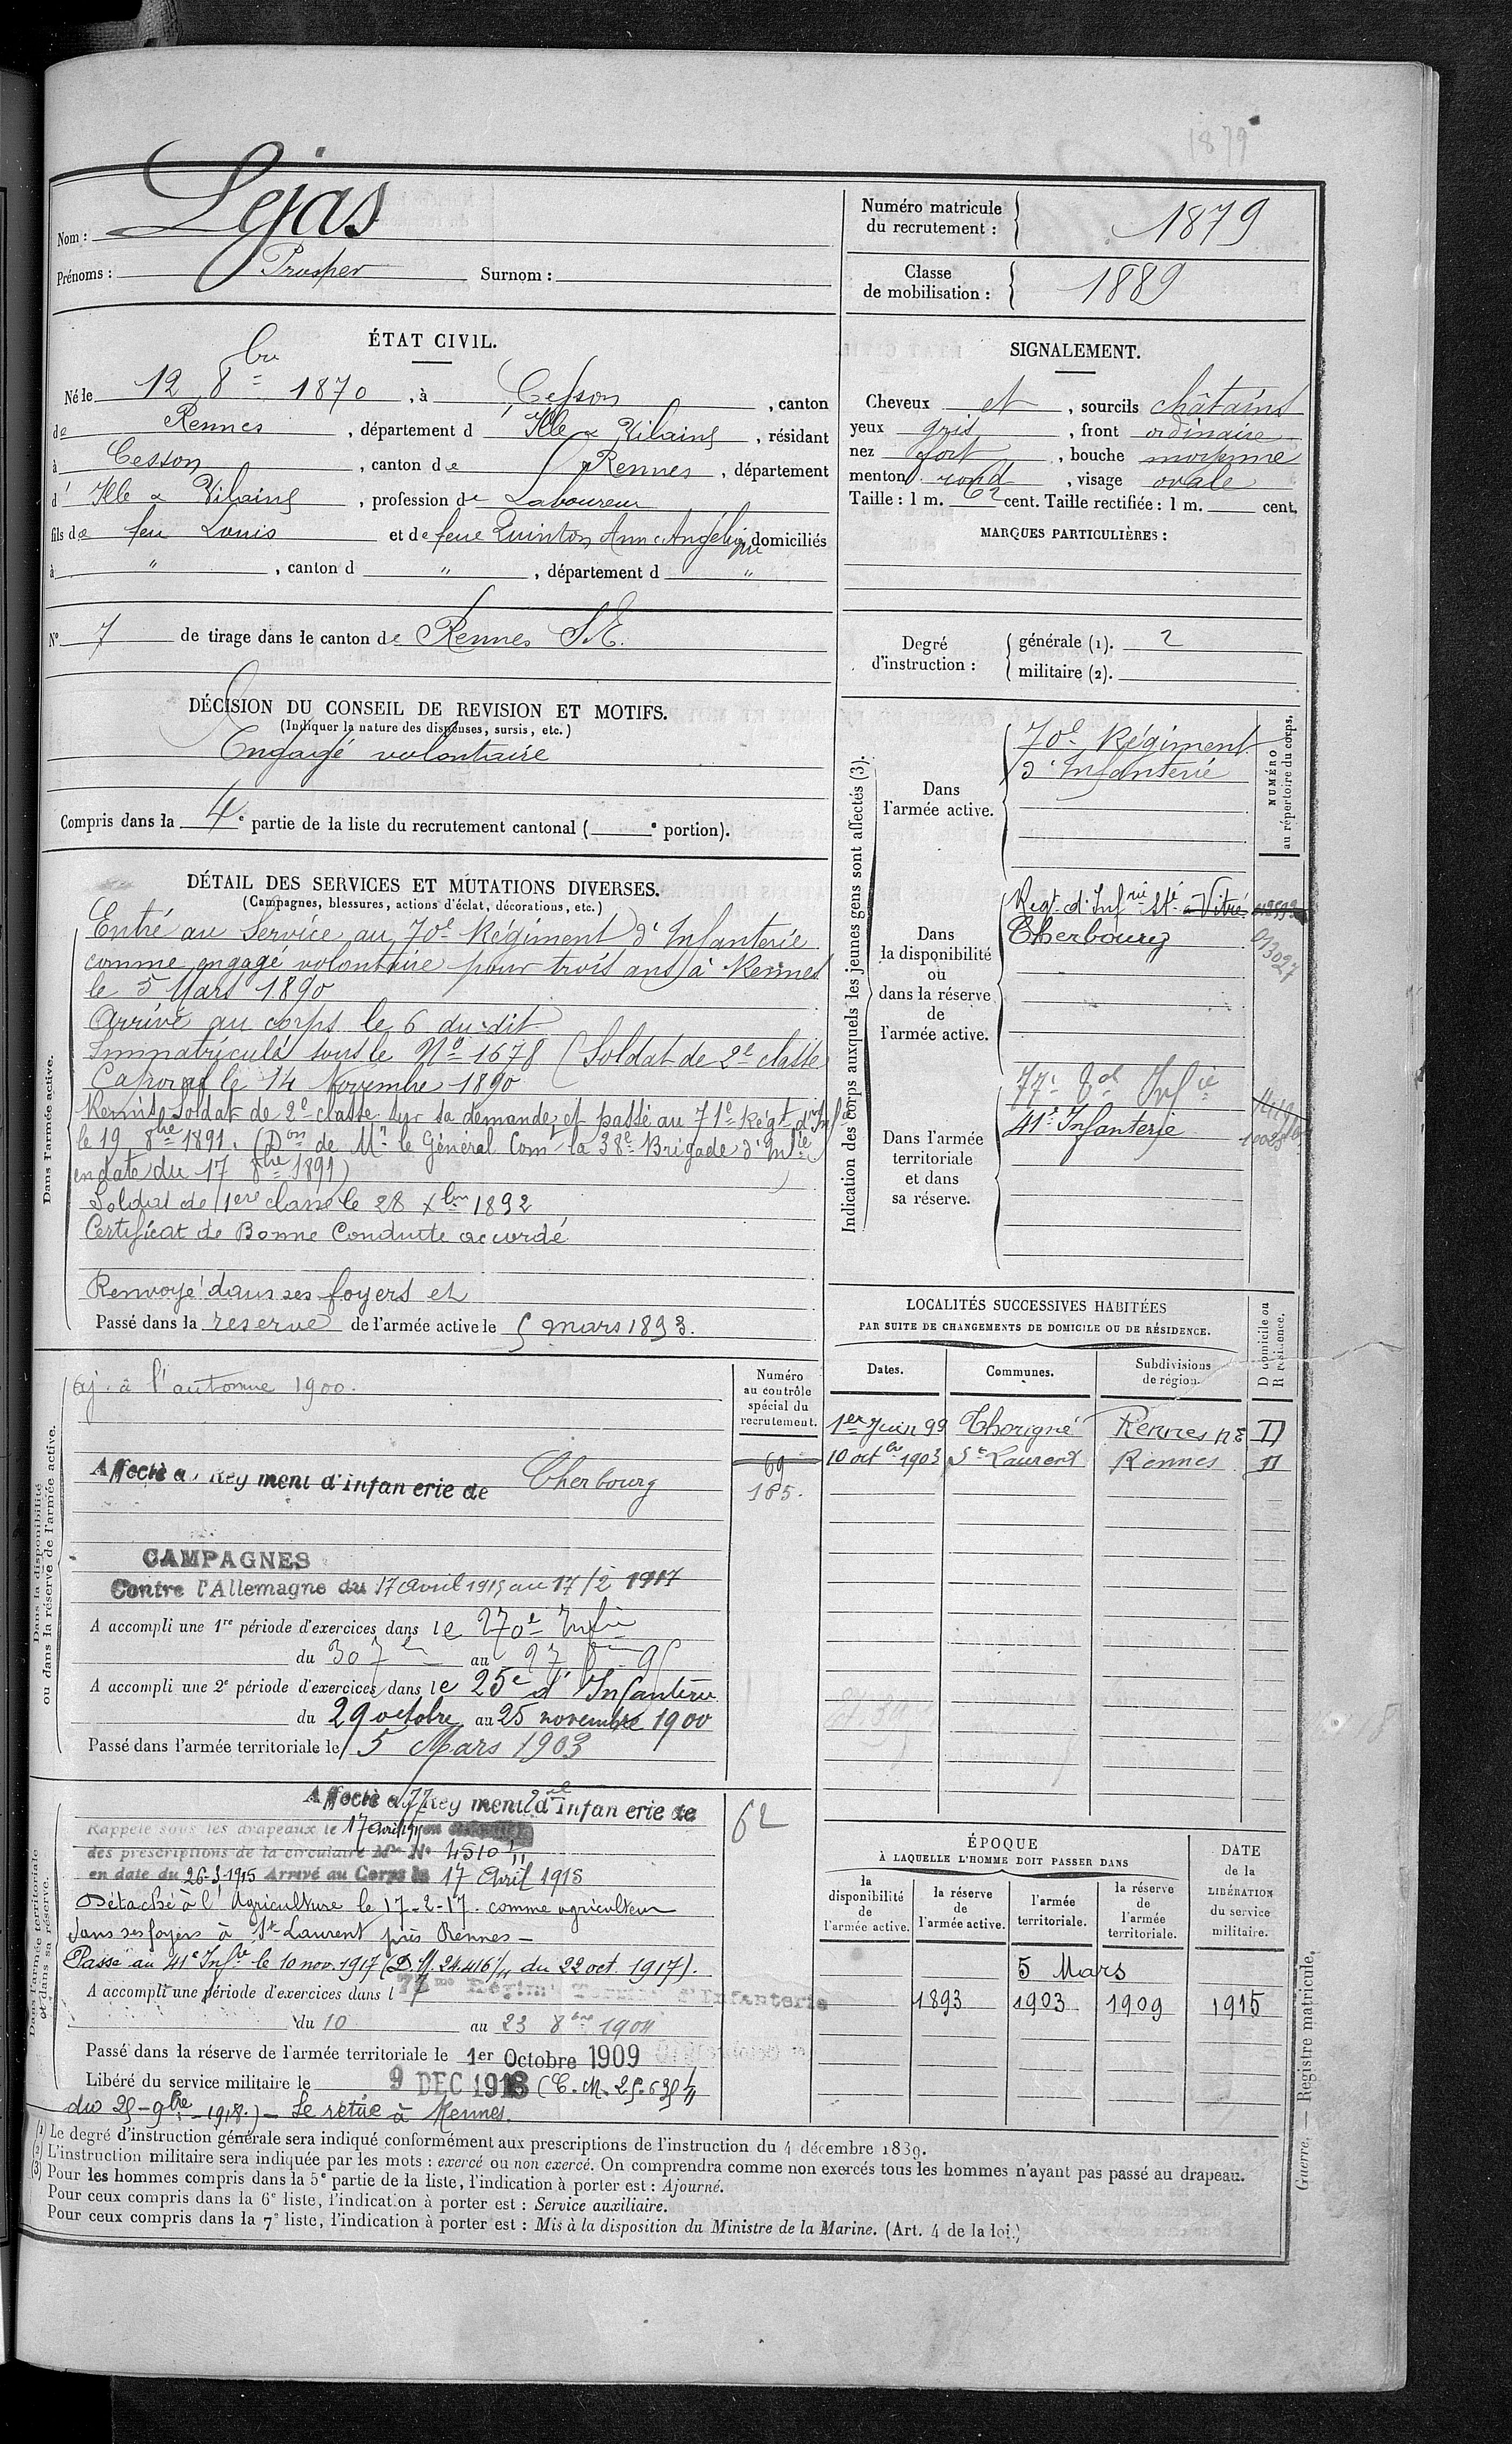 1879
Nom : Lejas
Prénoms : Prosper Surnom :
Numéro matricule
du recrutement : 1879
Classe
de mobilisation : 1889
ÉTAT CIVIL.
Né le 12 8bre 1870, à Cesson, canton
de Rennes, département d' Ille & Vilaine, résidant
à Cesson, canton de Rennes, département
d' Ille & Vilaine, profession de Laboureur
fils de feu Louis et de feue Quinton Anne Angélique domiciliés
à " , canton d " , département d "
N° 7 de tirage dans le canton de Rennes S.E.
DÉCISION DU CONSEIL DE REVISION ET MOTIFS.
(Indiquer la nature des dispenses, sursis, etc.)
Engagé volontaire
Compris dans la 4e partie de la liste du recrutement cantonal ( e portion).
SIGNALEMENT.
Cheveux et , sourcils châtains
yeux gris , front ordinaire
nez fort , bouche moyenne
menton rond , visage ovale
Taille : 1 m. 62 cent. Taille rectifiée : 1 m. cent.
MARQUES PARTICULIÈRES :
Degré
d'instruction :
générale (1). 2
militaire (2).
DÉTAIL DES SERVICES ET MUTATIONS DIVERSES.
(Campagnes, blessures, actions d'éclat, décorations, etc.)
Dans l'armée active.
Entré au service au 70e Régiment d'Infanterie
comme engagé volontaire pour trois ans à Rennes
le 5 Mars 1890
Arrivé au corps le 6 du dit
Immatriculé sous le No 1678 (Soldat de 2e classe
Caporal le 14 Novembre 1890
Remis Soldat de 2e classe sur sa demande et passé au 71e Régt d'Infie
le 19 8bre 1891. (Don de Mr le Général Comt la 38e Brigade d'Infie
en date du 17 8bre 1891)
Soldat de 1ere classe le 28 Xbre 1892
Certificat de Bonne Conduite accordé
Renvoyé dans ses foyers et
Passé dans la réserve de l'armée active le 5 mars 1893.
Indication des corps auxquels les jeunes gens sont affectés (3).
NUMÉRO
au répertoire du corps.
Dans
l'armée active.
70e Régiment
d'Infanterie
Dans
la disponibilité
ou
dans la réserve
de
l'armée active.
Regt d'Infrie Sté à Vitré
Cherbourg
013027
Dans l'armée
territoriale
et dans
sa réserve.
77e Tal Infie
41e Infanterie
LOCALITÉS SUCCESSIVES HABITÉES
PAR SUITE DE CHANGEMENTS DE DOMICILE OU DE RÉSIDENCE.
Dates. Communes. Subdivisions
de région.
D domicile ou
R résidence.
1er Juin 99 Thorigné Rennes NE D
10 octbre 1903 St Laurent Rennes D
Dans la disponibilité
ou dans la réserve de l'armée active.
Numéro
au contrôle
spécial du
recrutement.
Aj. à l'automne 1900.
69
165.
Affecté au Régiment d'Infanterie de Cherbourg
CAMPAGNES
Contre l'Allemagne du 17 avril 1915 au 17/2 1917
A accompli une 1re période d'exercices dans le 270e Infie
du 30 7bre au 27 8bre 95
A accompli une 2e période d'exercices dans le 25e d'Infanterie
du 29 octobre au 25 novembre 1900
Passé dans l'armée territoriale le 5 Mars 1903
Dans l'armée territoriale
et dans sa réserve.
Affecté au 77 Régiment Tal d'Infanterie de
62
Rappelé sous les drapeaux le 17 avril 1915 en
des prescriptions de la circulaire Mlle No 4510 1/11
en date du 26-3-1915 Arrivé au Corps le 17 Avril 1915
Détaché à l'Agriculture le 17-2-17 comme agriculteur
dans ses foyers à St Laurent près Rennes -
Passé au 41e Infie le 10 nov. 1917 (D.M. 24.416 1/11 du 22 oct. 1917).
A accompli une période d'exercices dans l 77me Régimt Territ d'Infanterie
du 10 au 23 8bre 1904
Passé dans la réserve de l'armée territoriale le 1er Octobre 1909
Libéré du service militaire le 9 DEC 1918 (C.M. 25.635 1/11
du 25-9bre-1918.) - Se retire à Rennes.
ÉPOQUE
À LAQUELLE L'HOMME DOIT PASSER DANS
DATE
de la
LIBÉRATION
du service
militaire.
la
disponibilité
de
l'armée active.
la réserve
de
l'armée active.
l'armée
territoriale.
la réserve
de
l'armée
territoriale.
5 Mars
1893 1903 1909 1915
(1) Le degré d'instruction générale sera indiqué conformément aux prescriptions de l'instruction du 4 décembre 1889.
(2) L'instruction militaire sera indiquée par les mots : exercé ou non exercé. On comprendra comme non exercés tous les hommes n'ayant pas passé au drapeau.
(3) Pour les hommes compris dans la 5e partie de la liste, l'indication à porter est : Ajourné.
Pour ceux compris dans la 6e liste, l'indication à porter est : Service auxiliaire.
Pour ceux compris dans la 7e liste, l'indication à porter est : Mis à la disposition du Ministre de la Marine. (Art. 4 de la loi.)
Guerre. — Registre matricule.